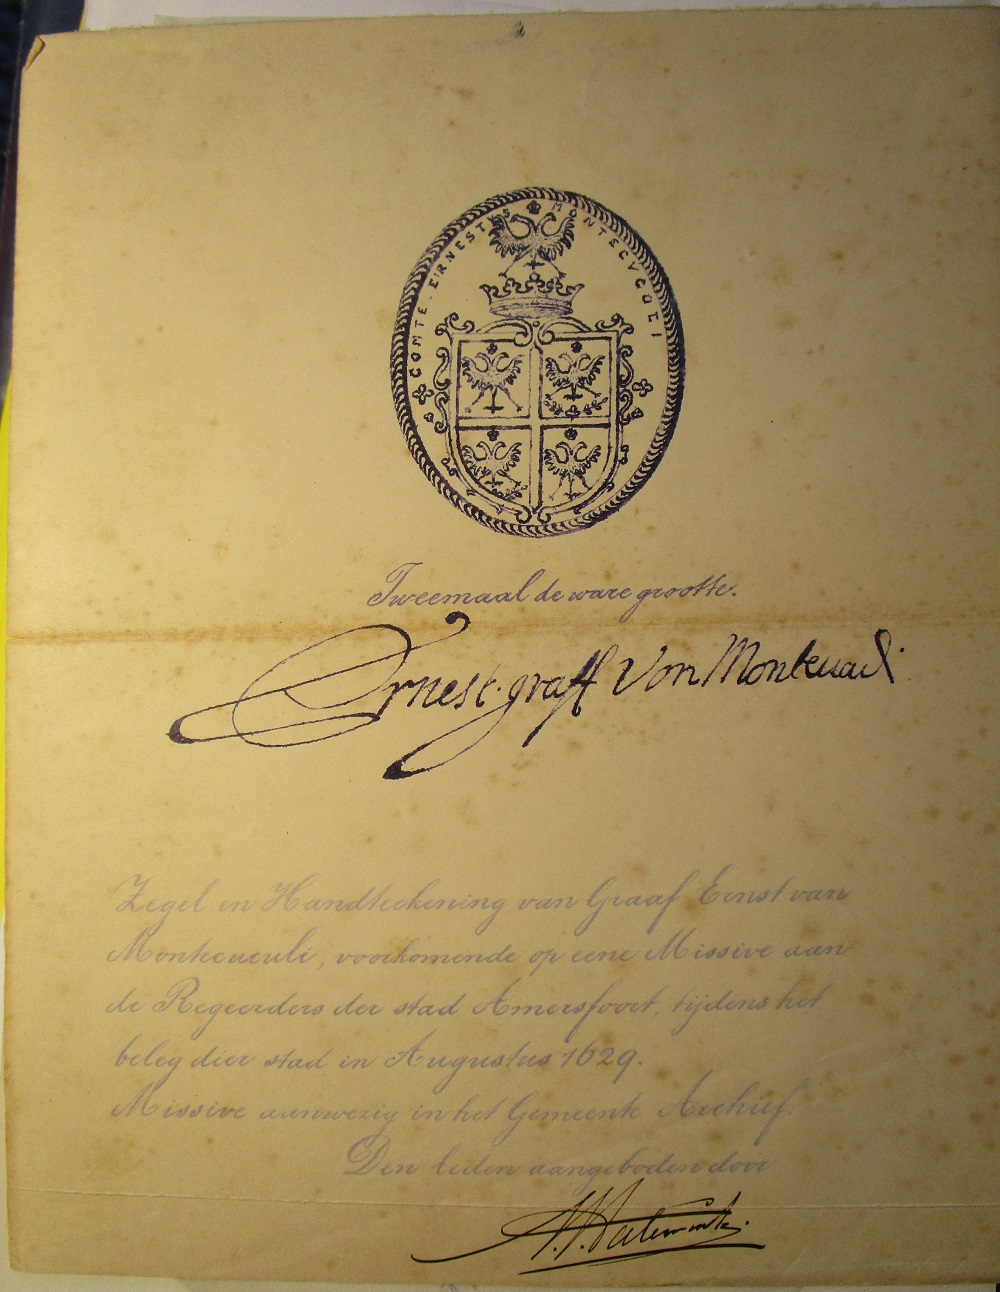 COMTE · ERNESTVS MONTECVCOLI
Tweemaal de ware grootte.
Ernest graff Von Montecucli
Zegel en Handteekening van Graaf Ernst van
Montecuculi, voorkomende op eene Missive aan
de Regeerders der stad Amersfoort, tijdens het
beleg dier stad in Augustus 1629.
Missive aanwezig in het Gemeente Archief.
Den leden aangeboden door